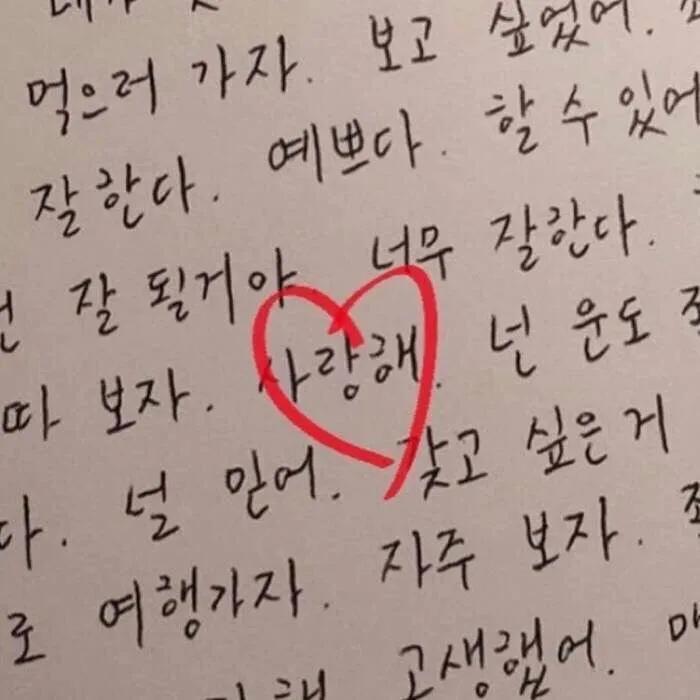 먹으러 가자. 보고 싶었어.
잘한다. 예쁘다. 할 수 있어
잘 될거야 너무 잘한다.
보자. 사랑해. 넌 운도
다. 널 믿어. 갖고 싶은거
로 여행가자. 자주 보자.
고생했어.